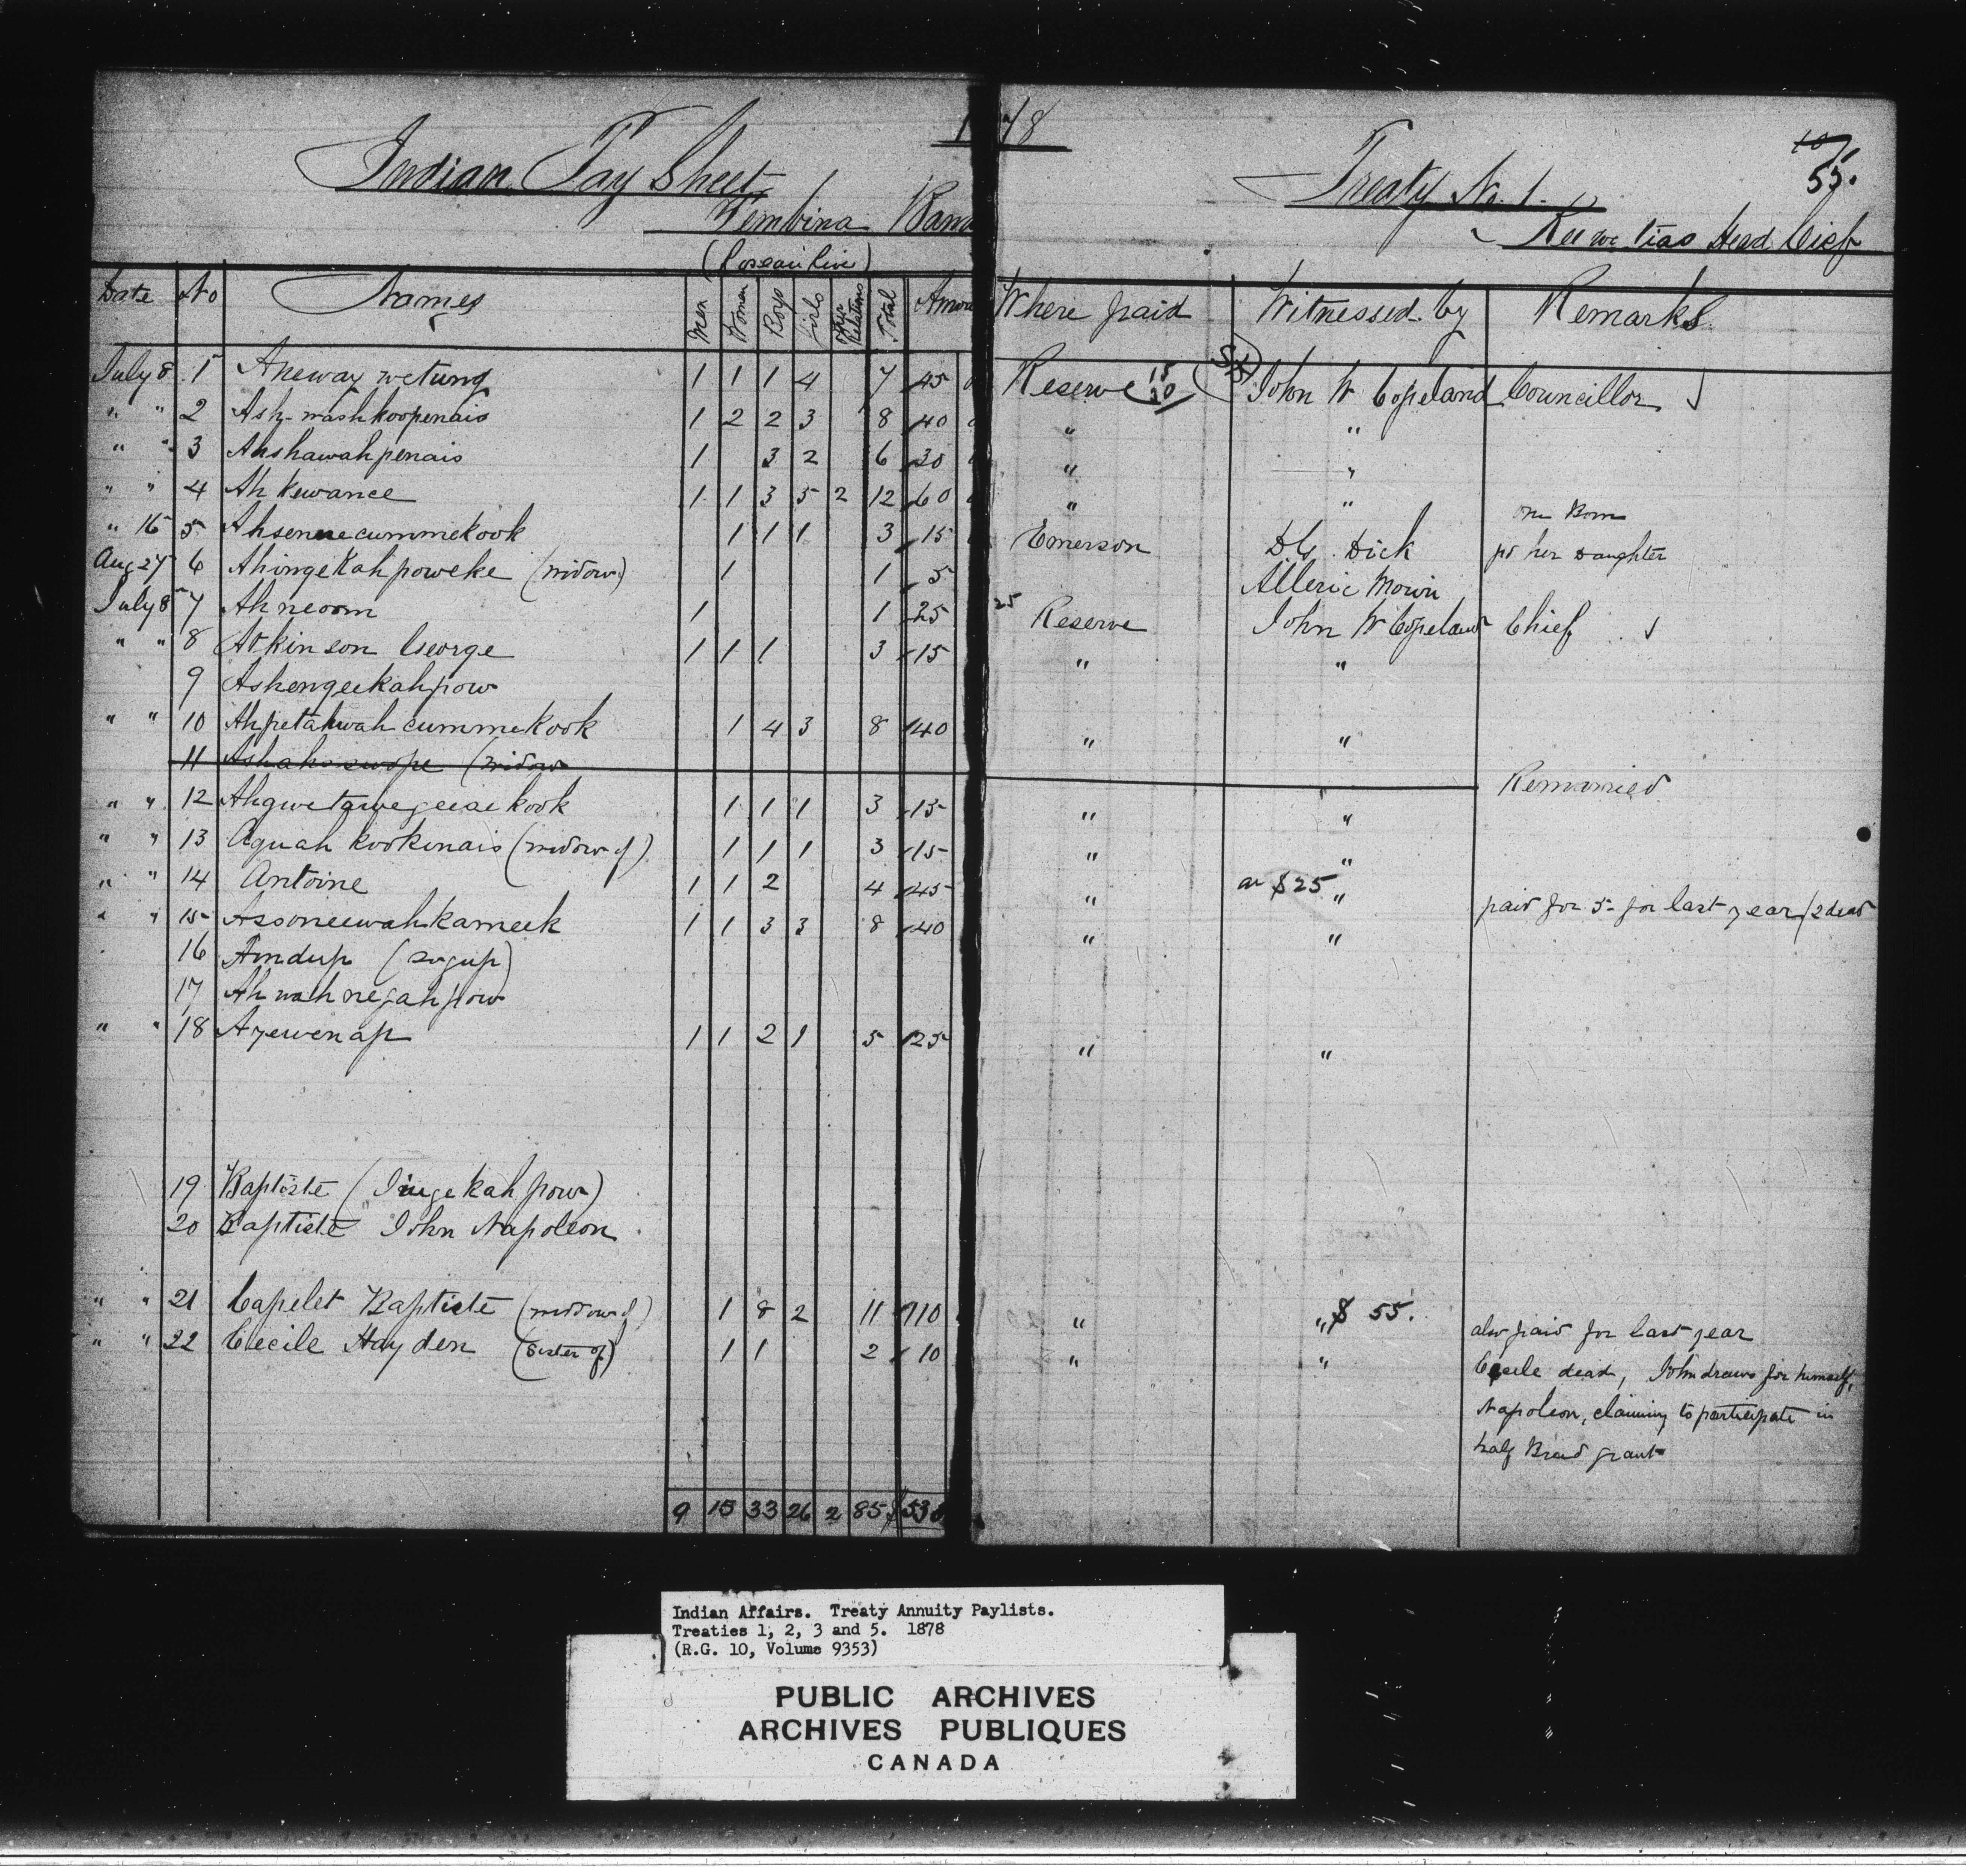 1878
Indian Pay Sheet
Treaty No. 1.
55.
Pembina Band
Head Chief
(Roseau River)
Date No Names Men Women Boys Girls Other Relatives Total Amou Where paid Witnessed by Remarks
July 8 1 Aneway wetung 1 1 1 4 7 45 Reserve 15 20 John W Copeland Councillor
" " 2 Ash-mashkoopenais 1 2 2 3 8 40 " "
" " 3 Ahshawahpenais 1 3 2 6 30 " "
" " 4 Ah kewance 1 1 3 5 2 12 60 " " one Born
" 16 5 Ahsenecummekook 1 1 1 3 15 Emerson Dick pd her Daughter
Aug 27 6 Ahingekahpoweke (widow) 1 1 5
July 8 7 Ahneoom 1 1 25 25 Reserve John W Copeland Chief
" " 8 Atkinson George 1 1 1 3 15 " "
9 Ashengeekahpow
" " 10 Ahpetahwah cummekook 1 4 3 8 40 " "
11 (widow Remarried
" " 12 1 1 1 3 15 " "
" " 13 Aquah kookenais (widow of) 1 1 1 3 15 " "
" " 14 Antoine 1 1 2 4 45 " $25 " paid for 5 for last year/2 dead
" " 15 Asooneewahkameek 1 1 3 3 8 40 " "
16 Amdup
17 Ah wah negahpow
" " 18 Ayewenap 1 1 2 1 5 25 " "
19 Baptiste (Ingekahpow)
20 Baptiste John Napoleon
" " 21 Capelet Baptiste (widow of) 1 8 2 11 110 " " $55. also paid for last year
" " 22 Cecile Hayden (sister of) 1 1 2 10 " " Cecile dead, John draws for himself,
Napoleon, claiming to participate in
half Breed grant
9 15 33 26 2 85 $530
Indian Affairs. Treaty Annuity Paylists.
Treaties 1, 2, 3 and 5. 1878
(R.G. 10, Volume 9353)
PUBLIC ARCHIVES
ARCHIVES PUBLIQUES
CANADA